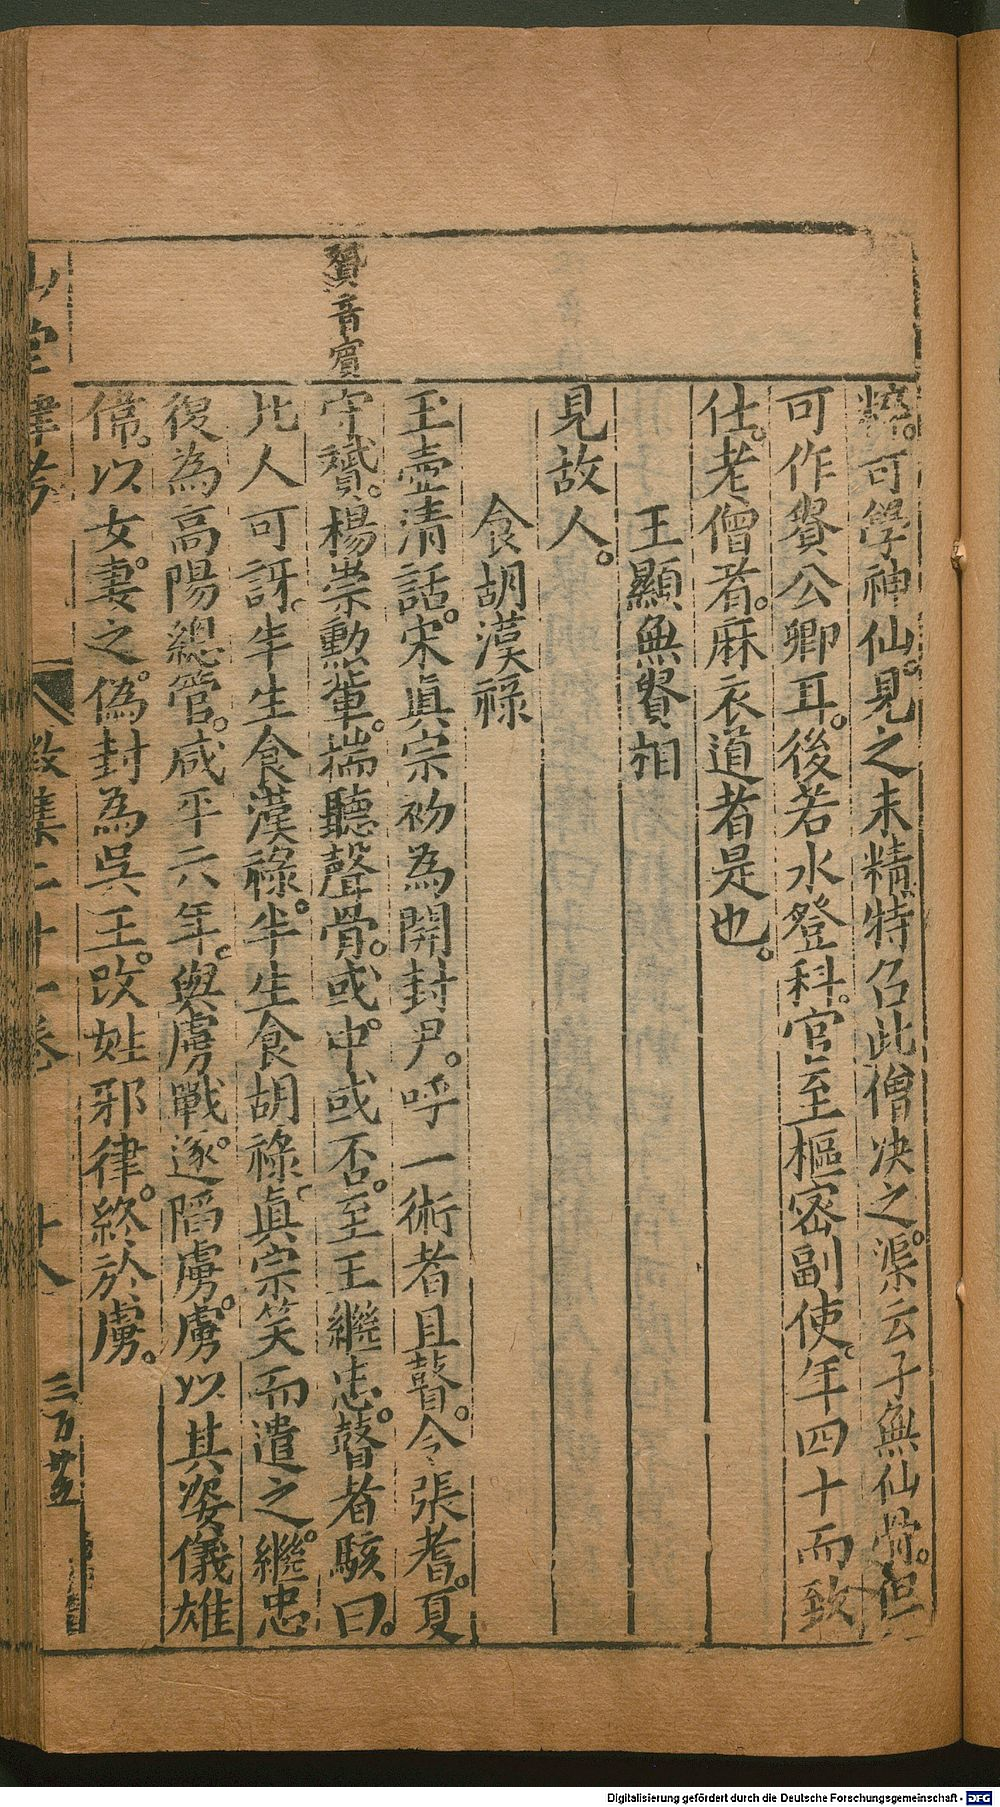 可學神仙見之未精特召此僧决之渠云子無仙骨但
可作貴公卿耳後若水登科官至樞密副使年四十而致
仕老僧者麻衣道者是也
王顯無貴相
見故人
食胡漢祿
玉壷清話宋眞宗初為開封尹呼一術者且瞽令張耆夏
守贇楊崇勳輩揣聽聲骨或中或否至王繼忠瞽者駭曰
此人可訝半生食漢祿半生食胡祿眞宗笑而遣之繼忠
復為高陽總管咸平六年與虜戰遂陷虜虜以其姿儀雄
偉以女妻之偽封為吳王改姓邪律終於虜
贇音賓
山堂肆考
徵集二十一卷
十八
三百廿五
Digitalisierung gefördert durch die Deutsche Forschungsgemeinschaft - DFG